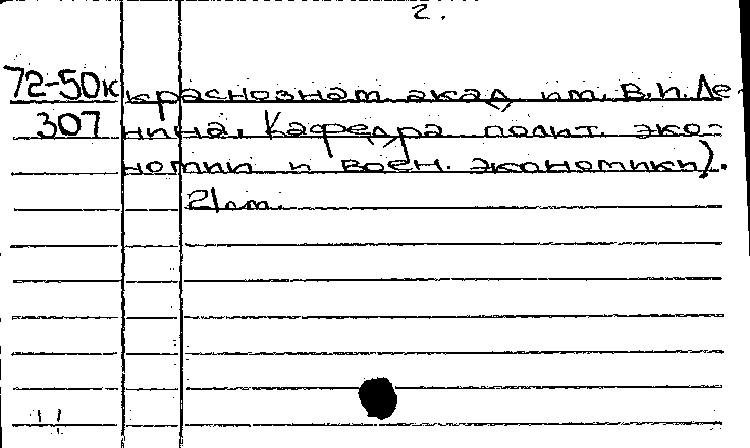 2.
72-50к краснознам. акад. им. В.И. Ле-
307 нина. Кафедра полит. эко-
номии и воен. экономики).